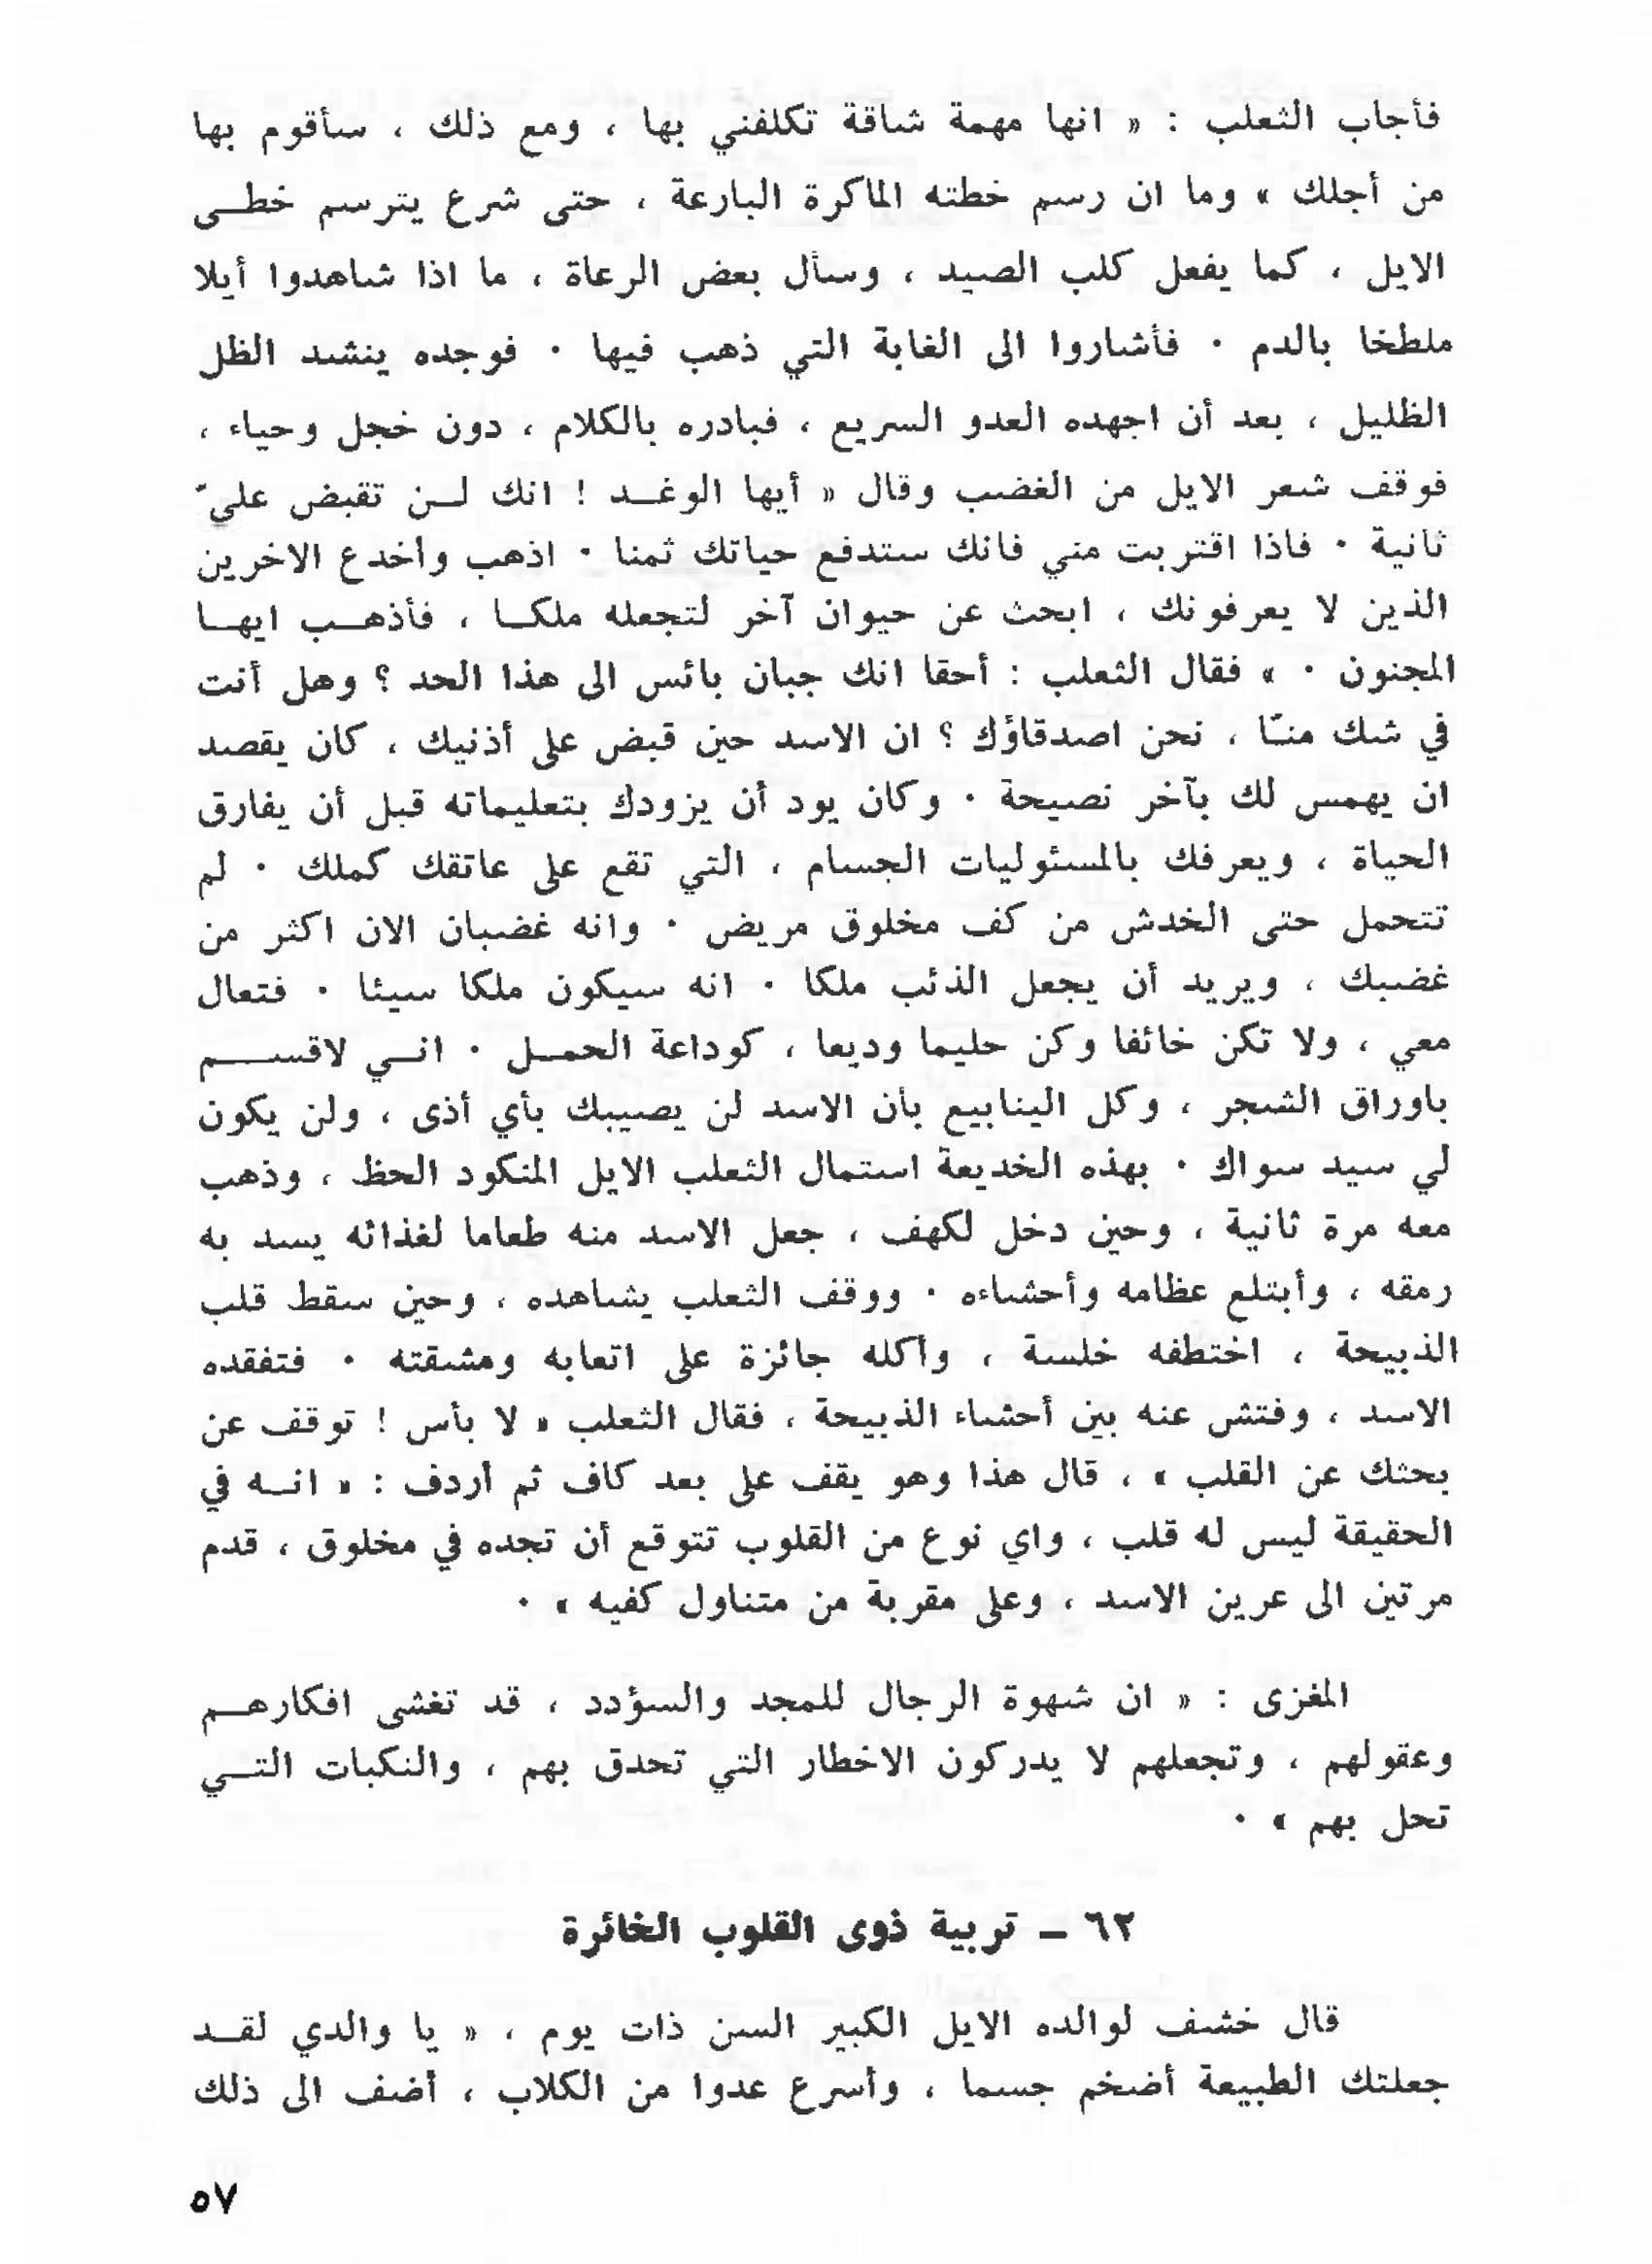 فأجاب الثعلب : « انها مهمة شاقة تكلفني بها ، ومع ذلك ، سأقوم بها
من أجلك » وما ان رسم خطته الماكرة البارعة ، حتى شرع يترسم خطى
الايل ، كما يفعل كلب الصيد ، وسأل بعض الرعاة ، ما اذا شاهدوا أيلا
ملطخا بالدم . فأشاروا الى الغابة التي ذهب فيها . فوجده ينشد الظل
الظليل ، بعد أن اجهده العدو السريع ، فبادره بالكلام ، دون خجل وحياء ،
فوقف شعر الايل من الغضب وقال « أيها الوغد ! انك لن تقبض عليّ
ثانية . فاذا اقتربت مني فانك ستدفع حياتك ثمنا . اذهب وأخدع الاخرين
الذين لا يعرفونك ، ابحث عن حيوان آخر لتجعله ملكا ، فأذهب ايها
المجنون . » فقال الثعلب : أحقا انك جبان بائس الى هذا الحد ؟ وهل أنت
في شك منّا ، نحن اصدقاؤك ؟ ان الاسد حين قبض على أذنيك ، كان يقصد
ان يهمس لك بآخر نصيحة . وكان يود أن يزودك بتعليماته قبل أن يفارق
الحياة ، ويعرفك بالمسئوليات الجسام ، التي تقع على عاتقك كملك . لم
تتحمل حتى الخدش من كف مخلوق مريض . وانه غضبان الان اكثر من
غضبك ، ويريد أن يجعل الذئب ملكا . انه سيكون ملكا سيئا . فتعال
معي ، ولا تكن خائفا وكن حليما وديعا ، كوداعة الحمل . اني لاقسم
باوراق الشجر ، وكل الينابيع بأن الاسد لن يصيبك بأي أذى ، ولن يكون
لي سيد سواك . بهذه الخديعة استمال الثعلب الايل المنكود الحظ ، وذهب
معه مرة ثانية ، وحين دخل لكهف ، جعل الاسد منه طعاما لغذائه يسد به
رمقه ، وأبتلع عظامه وأحشاءه . ووقف الثعلب يشاهده ، وحين سقط قلب
الذبيحة ، اختطفه خلسة ، وأكله جائزة على اتعابه ومشقته . فتفقده
الاسد ، وفتش عنه بين أحشاء الذبيحة ، فقال الثعلب « لا بأس ! توقف عن
بحثك عن القلب » ، قال هذا وهو يقف على بعد كاف ثم أردف : « انه في
الحقيقة ليس له قلب ، واي نوع من القلوب تتوقع أن تجده في مخلوق ، قدم
مرتين الى عرين الاسد ، وعلى مقربة من متناول كفيه » .
المغزى : « ان شهوة الرجال للمجد والسؤدد ، قد تغشى افكارهم
وعقولهم ، وتجعلهم لا يدركون الاخطار التي تحدق بهم ، والنكبات التي
تحل بهم » .
٦٢ - تربية ذوى القلوب الخائرة
قال خشف لوالده الايل الكبير السن ذات يوم ، « يا والدي لقد
جعلتك الطبيعة أضخم جسما ، وأسرع عدوا من الكلاب ، أضف الى ذلك
٥٧